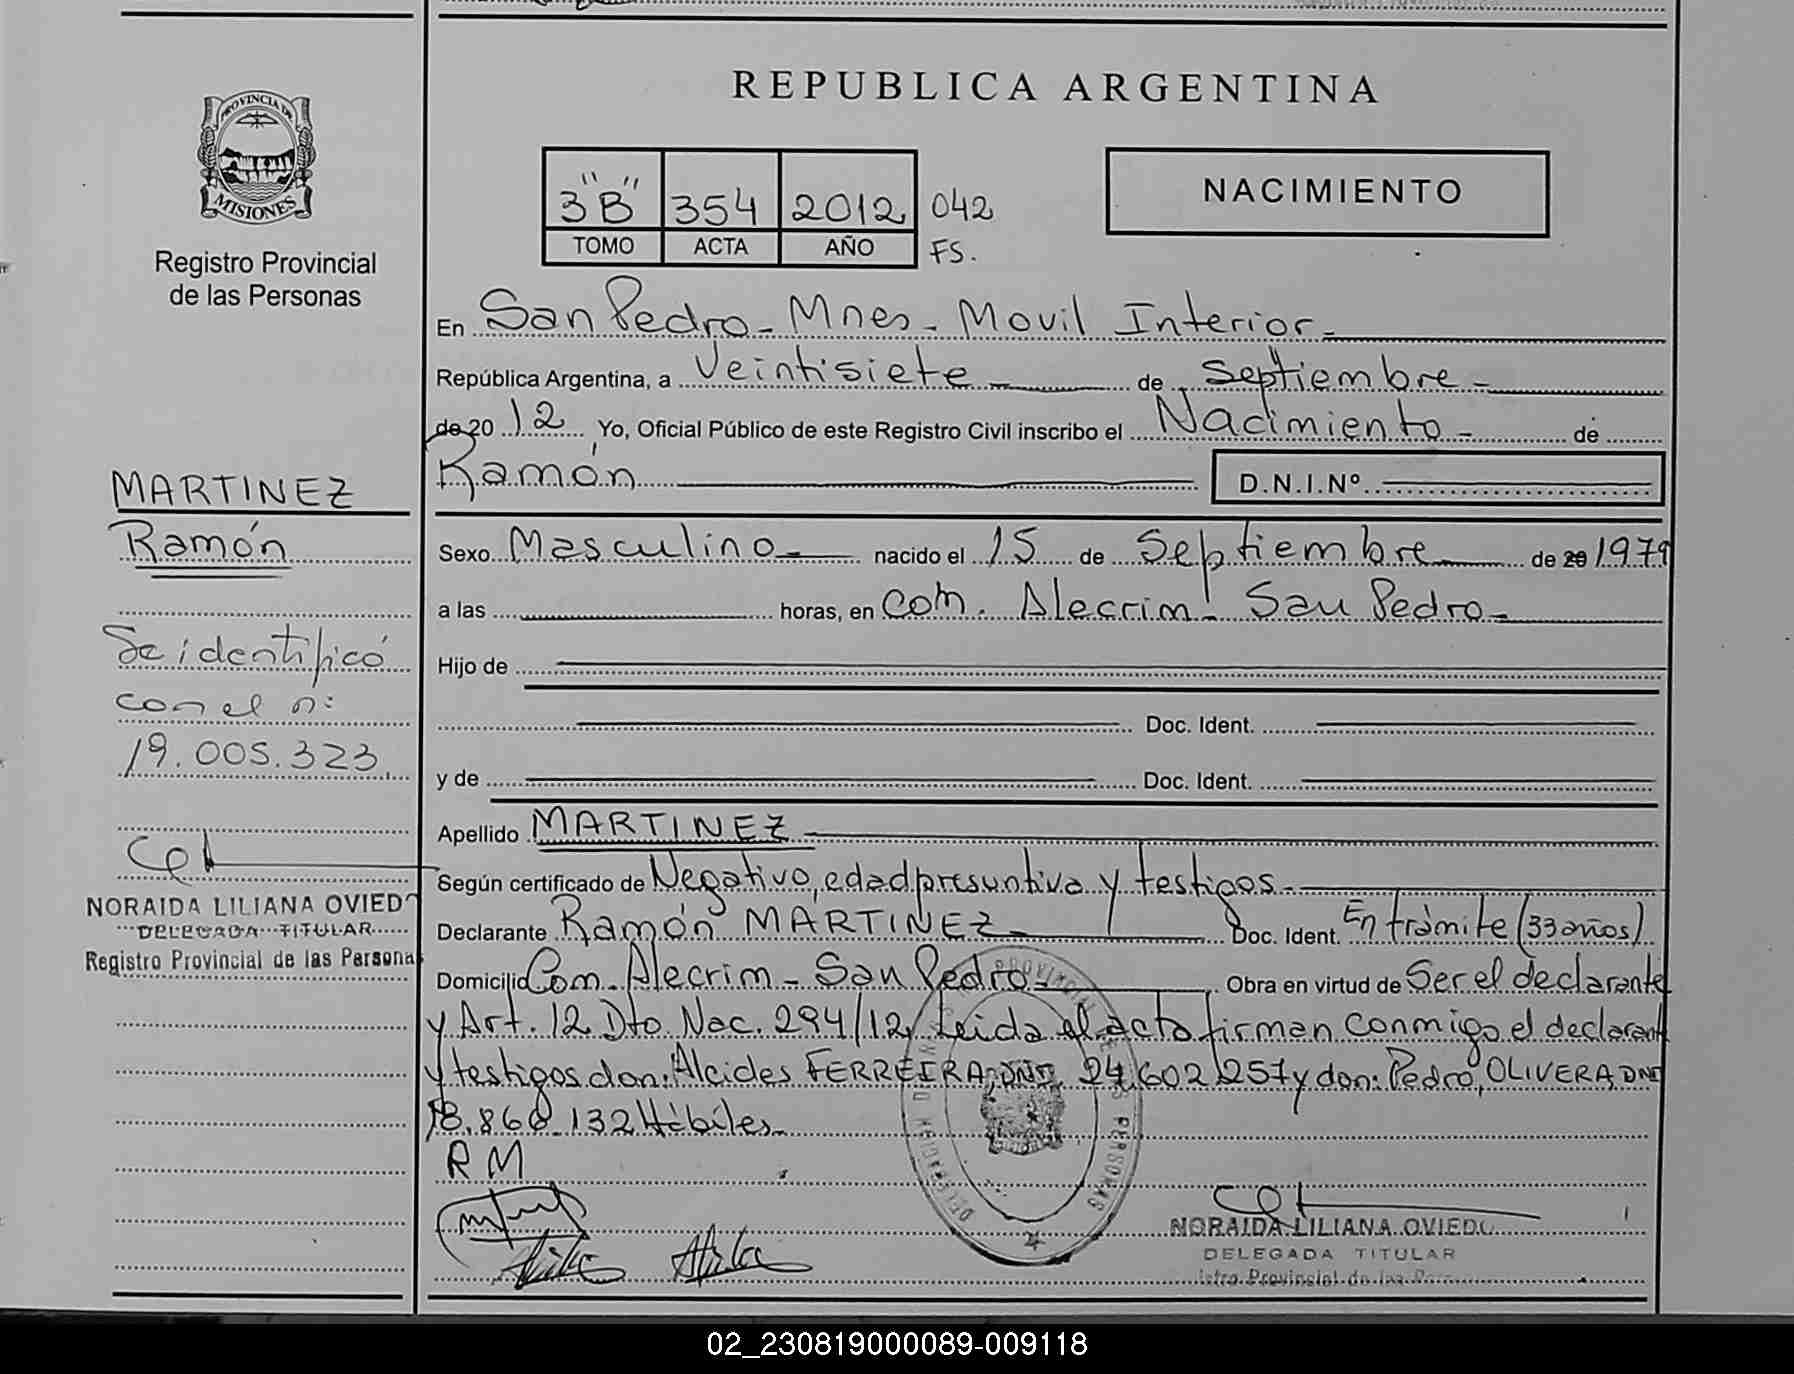 REPUBLICA ARGENTINA
PROVINCIA DE
MISIONES
Registro Provincial
de las Personas
3"B" 354 2012 042
TOMO ACTA AÑO FS.
NACIMIENTO
En San Pedro - Mnes - Movil Interior -
República Argentina, a Veintisiete - de Septiembre -
de 20 12 Yo, Oficial Público de este Registro Civil inscribo el Nacimiento - de
Ramón D.N.I.Nº
MARTINEZ
Ramón
Se identificó
con el nº:
19.005.323
NORAIDA LILIANA OVIEDO
DELEGADA TITULAR
Registro Provincial de las Persona
Sexo Masculino - nacido el 15 de Septiembre de 20 1979
a las horas, en Com. Alecrim! San Pedro -
Hijo de
Doc. Ident.
y de Doc. Ident.
Apellido MARTINEZ
Según certificado de Negativo, edad presuntiva y testigos -
Declarante Ramón MARTINEZ - Doc. Ident. En trámite (33 años)
Domicilio Com. Alecrim - San Pedro - Obra en virtud de Ser el declarante
y Art. 12 Dto. Nac. 294/12, Leida el acta firman conmigo el declarante
y testigos don: Alcides FERREIRA, DNI. 24.602.257 y don: Pedro, OLIVERA, DNI
18.860.132 Hábiles -
RM
NORAIDA LILIANA OVIEDO
DELEGADA TITULAR
istro Provincial de las Perso
02_230819000089-009118